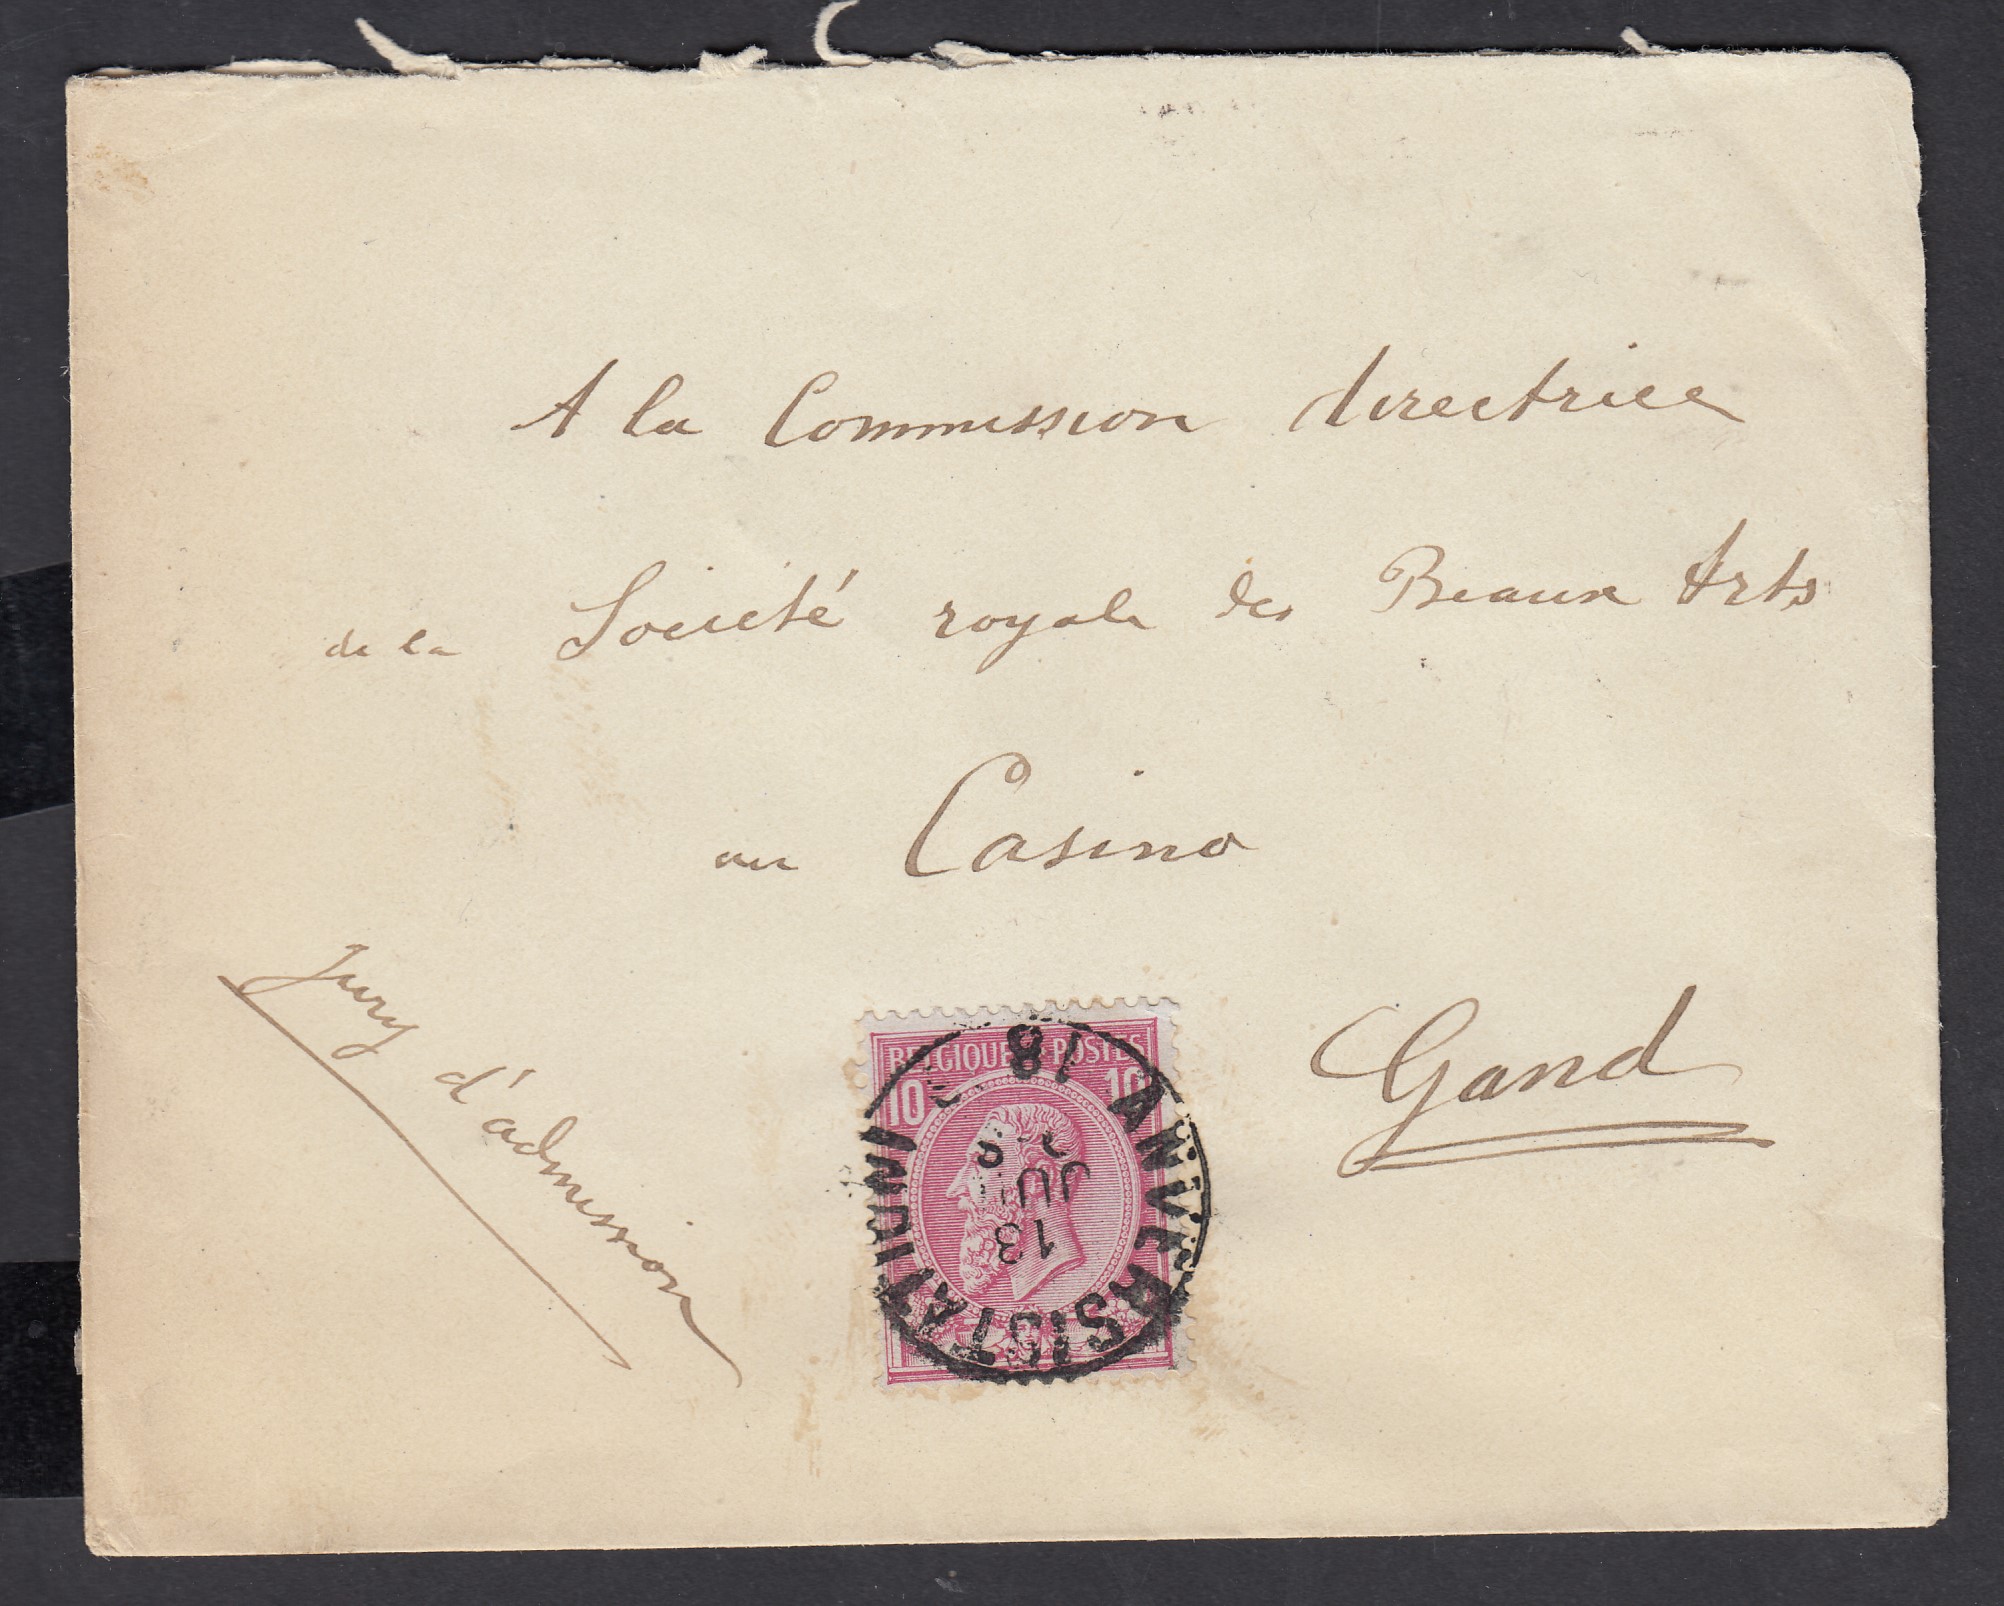 A la Commission directrice
de la Société royale des Beaux Arts
au Casino
Gand
Jury d'admission
BELGIQUE POSTES
10 10
ANVERS (STATION)
13 JUIL
18